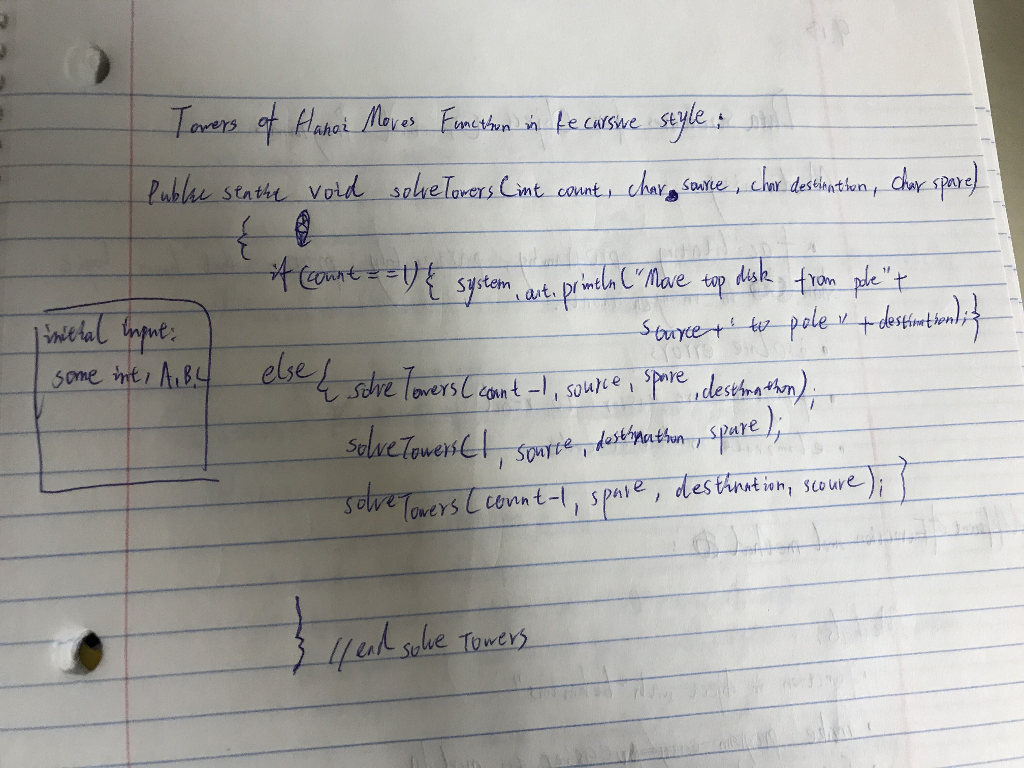 Towers of Hanoi Moves Function in Recursive style:
Public static void solveTowers(int count, char source, char destination, char spare)
{
if (count == 1) { system.out.println("Move top disk from pole" +
source + " to pole " + destination); }
initial input:
some int, A, B, C
else { solveTowers(count -1, source, spare, destination);
solveTowers(1, source, destination, spare);
solveTowers(count-1, spare, destination, scoure); }
} //end solve Towers